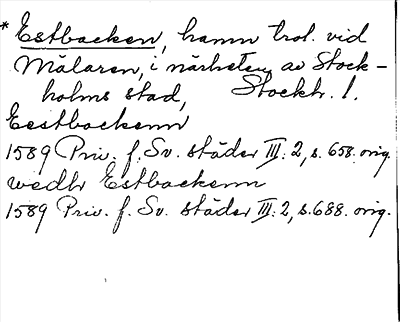 * Estbacken, hamn trol. vid
Mälaren, i närheten av Stock-
holms stad, Stockh. l.
Eestbackenn
1589 Priv. f. Sv. städer III: 2, s. 658. orig.
wedh Estbackenn
1589 Priv. f. Sv. städer III: 2, s. 688. orig.